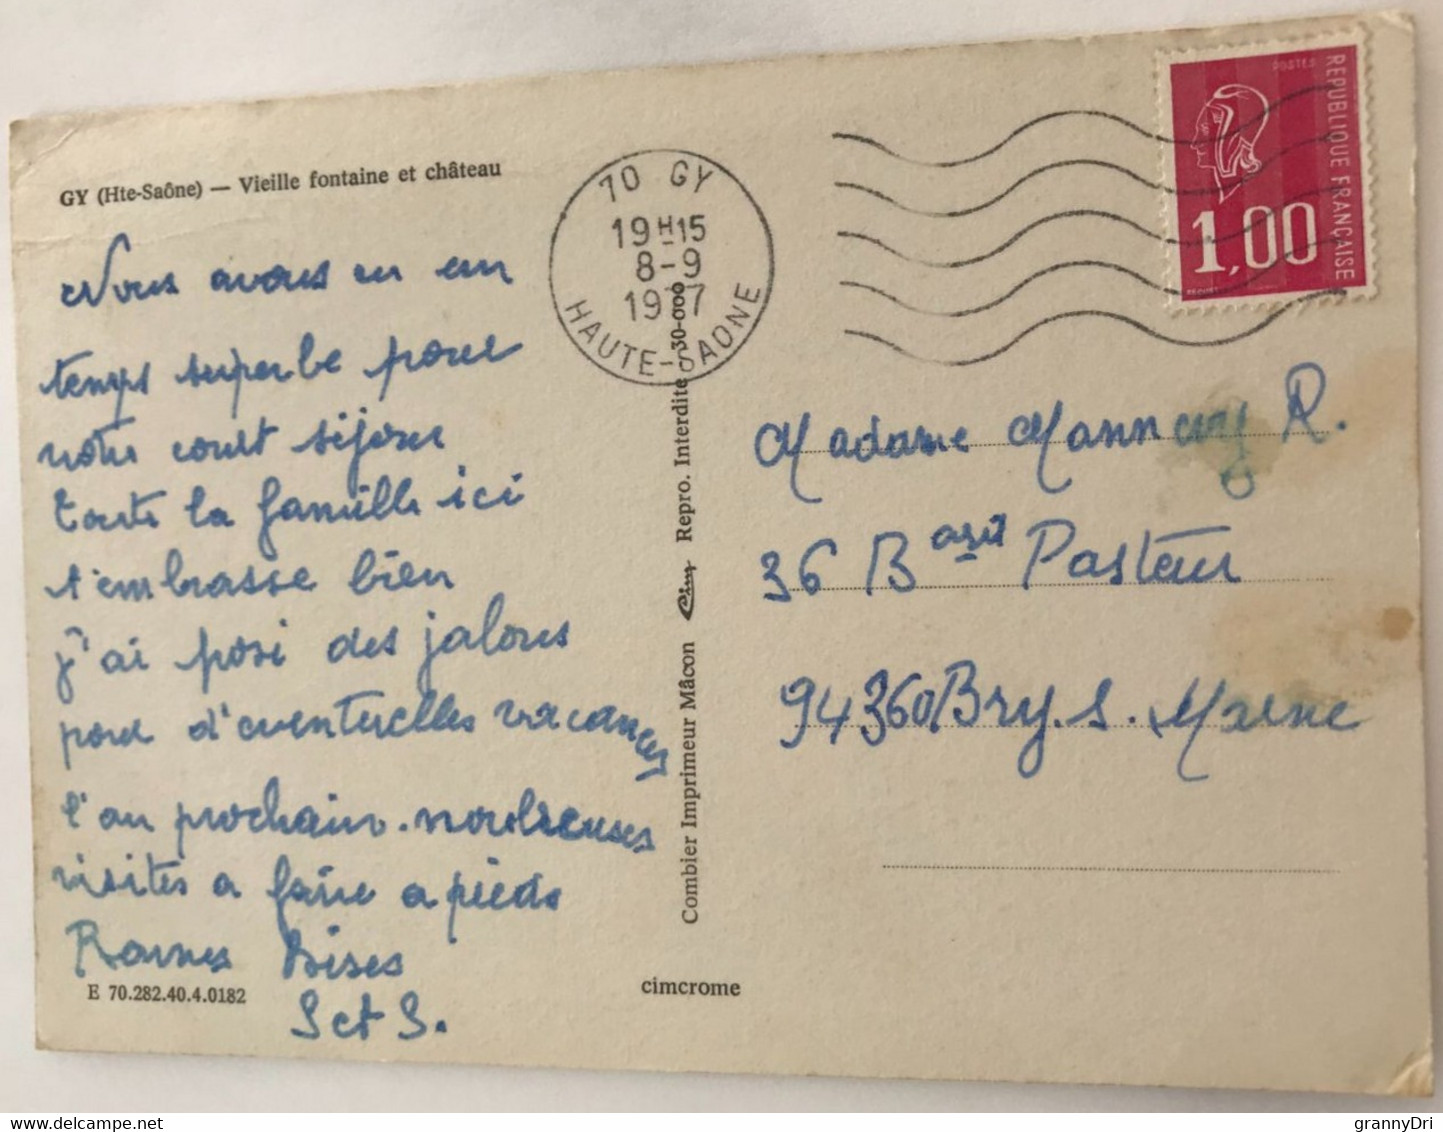 GY (Hte-Saône) — Vieille fontaine et château
Nous avons eu un
temps superbe pour
notre court séjour
toute la famille ici
t'embrasse bien
j'ai posé des jalons
pour d'eventuelles vacances
l'an prochain. nombreuses
visites a faire a pieds
Bonnes Bises
S et S.
E 70.282.40.4.0182
70 GY
19H15
8-9
1977
HAUTE-SAONE
Combier Imprimeur Mâcon Cim Repro. Interdite 30-000
cimcrome
POSTES
REPUBLIQUE FRANÇAISE
1,00
Madame R.
36 B ard Pasteur
94360 Bry. s. Marne
www.delcampe.net
grannyDri